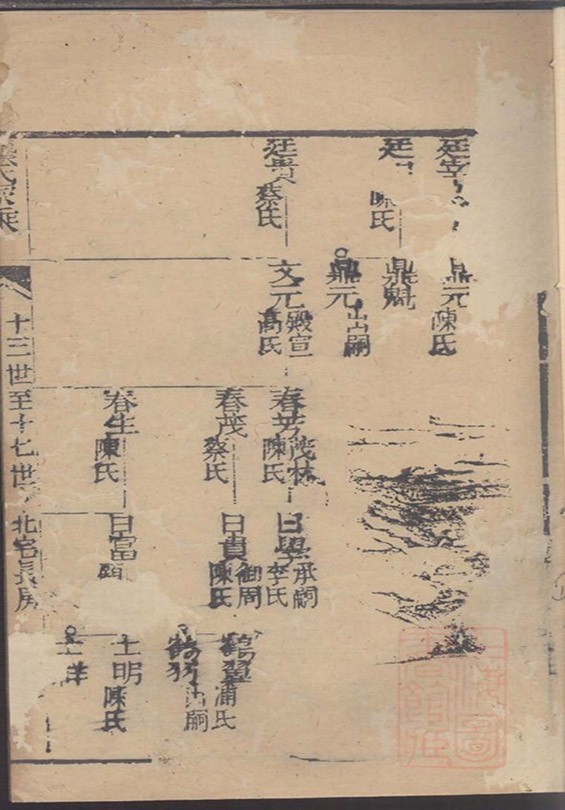 廷
陳氏
廷貴
蔡氏
鼎元
陳氏
鼎魁
鼎元
出嗣
文元
殿宣
高氏
春芳
茂林
陳氏
春茂
蔡氏
春生
陳氏
日學
承嗣
李氏
日貴
御周
陳氏
日富
鶴翼
浦氏
出嗣
士明
陳氏
氏家乘
十三世至十七世
北宮長房
上海圖
書館藏